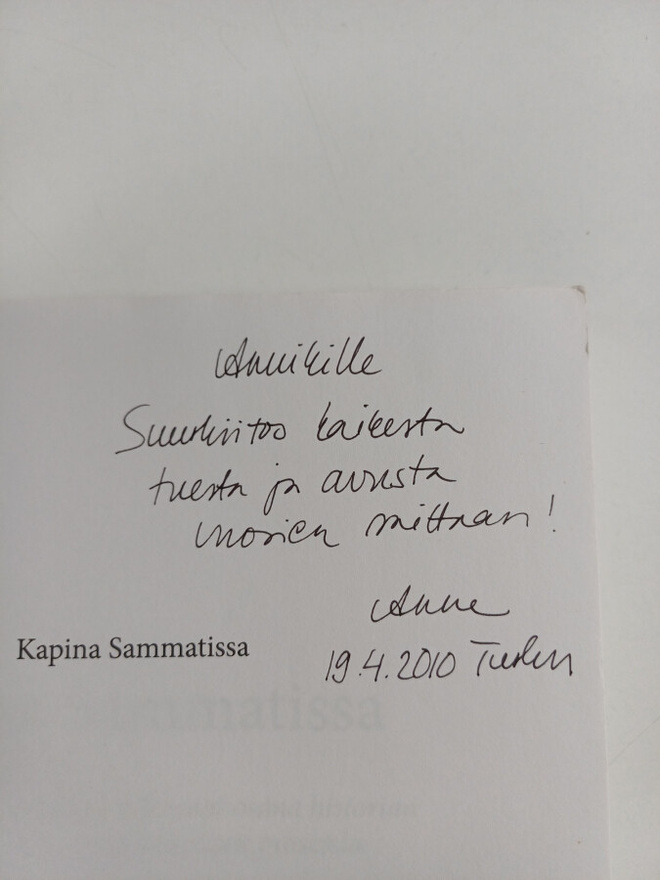 Annikille
Suurkiitos kaikesta
tuesta ja avusta
vuosien mittaan!
Anne
19.4.2010
Kapina Sammatissa